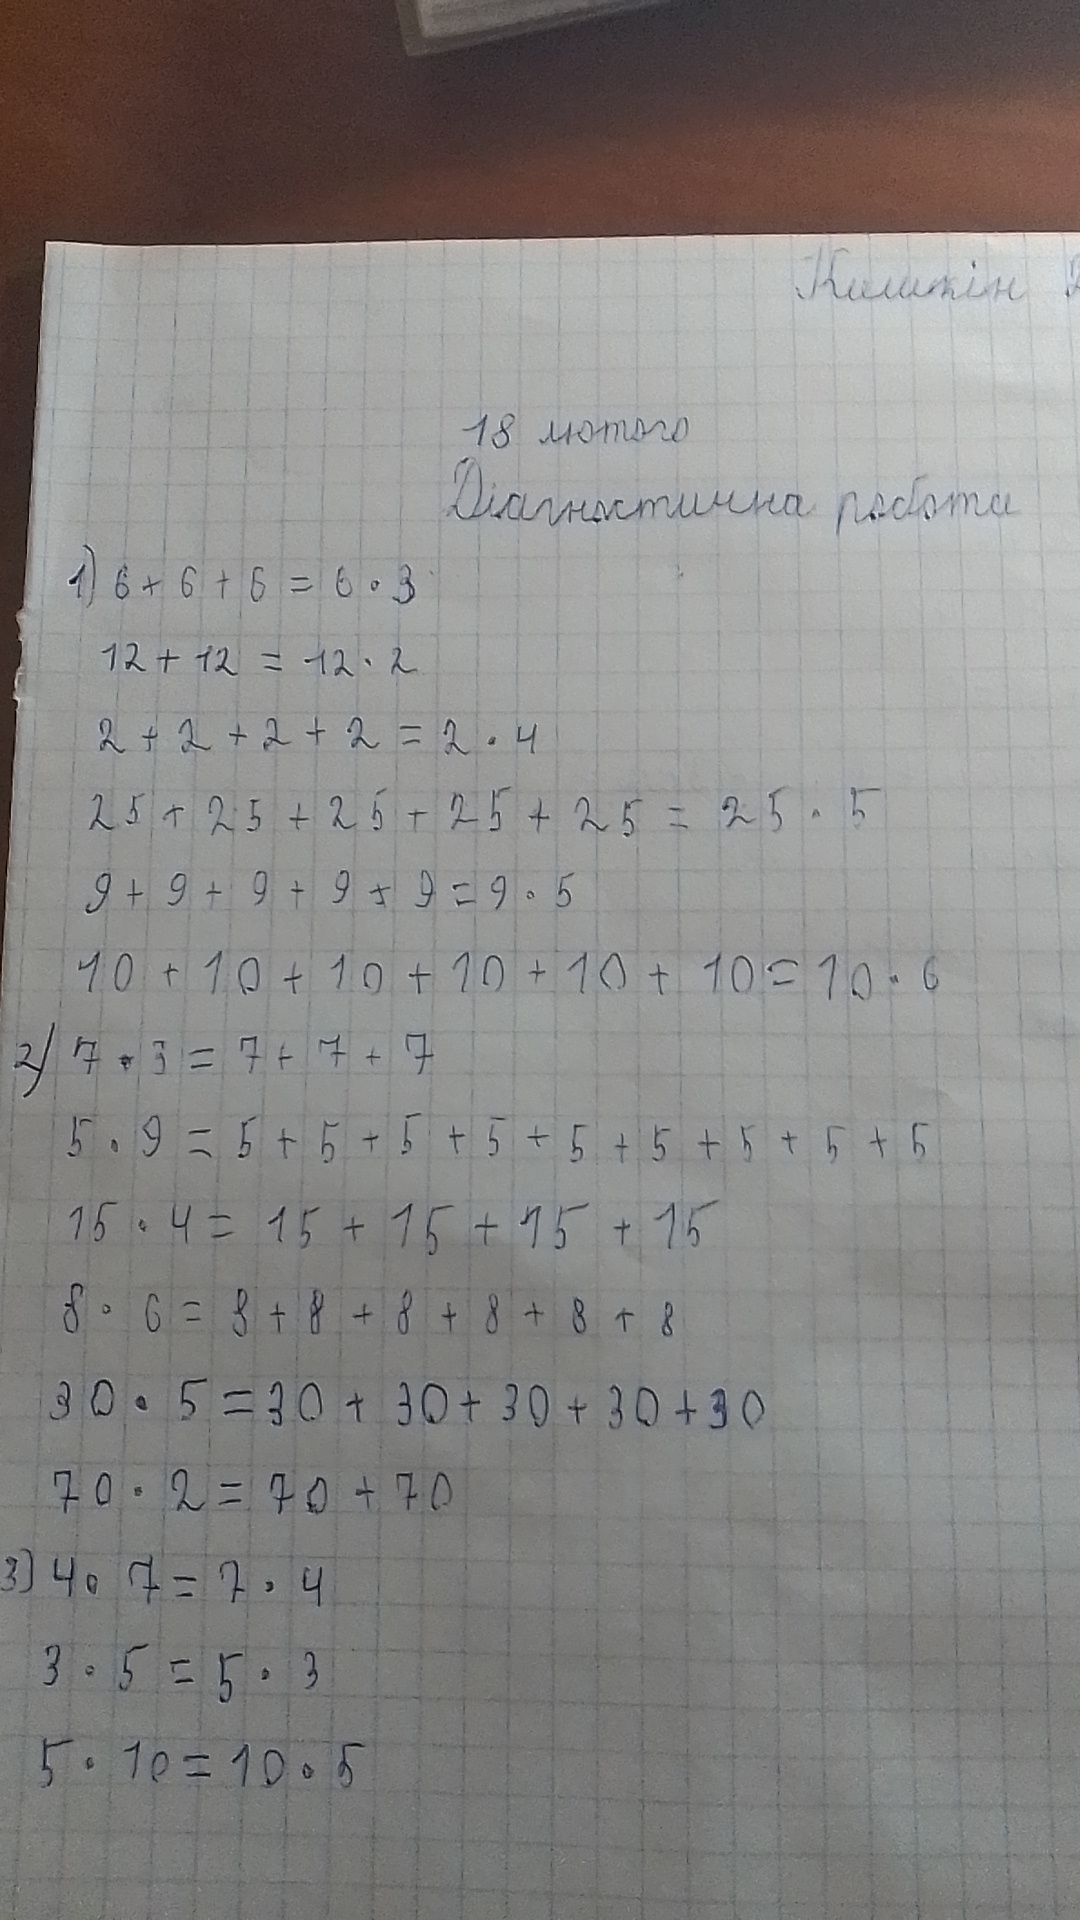 Кишкін
18 лютого
Діагностична робота
1) 6 + 6 + 6 = 6 · 3
12 + 12 = 12 · 2
2 + 2 + 2 + 2 = 2 · 4
25 + 25 + 25 + 25 + 25 = 25 · 5
9 + 9 + 9 + 9 + 9 = 9 · 5
10 + 10 + 10 + 10 + 10 + 10 = 10 · 6
2) 7 · 3 = 7 + 7 + 7
5 · 9 = 5 + 5 + 5 + 5 + 5 + 5 + 5 + 5 + 5
15 · 4 = 15 + 15 + 15 + 15
8 · 6 = 8 + 8 + 8 + 8 + 8 + 8
30 · 5 = 30 + 30 + 30 + 30 + 30
70 · 2 = 70 + 70
3) 4 · 7 = 7 · 4
3 · 5 = 5 · 3
5 · 10 = 10 · 5